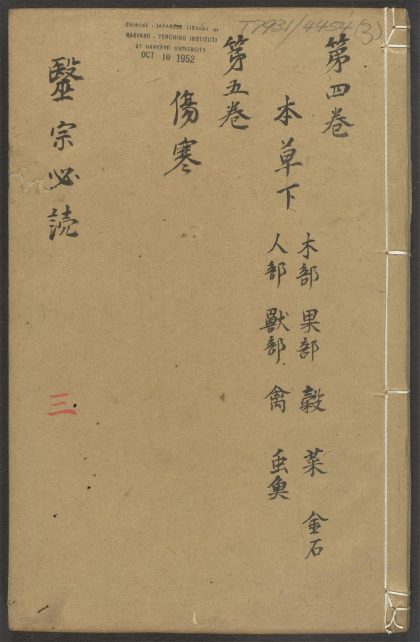 T7931/4454(3)
CHINESE-JAPANESE LIBRARY OF
HARVARD-YENCHING INSTITUTE
AT HARVARD UNIVERSITY
OCT 10 1952
第四巻
本草下
木部 果部 穀 菜 金石
人部 獸部 禽 虫魚
第五巻
傷寒
毉宗必読
三